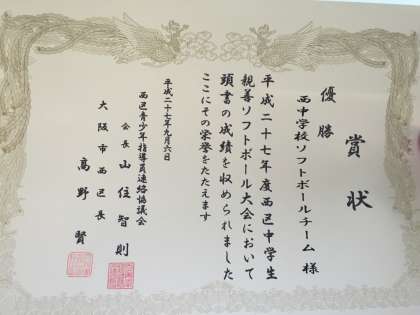 賞状
優勝
西中学校ソフトボールチーム 様
平成二十七年度西区中学生
親善ソフトボール大会において
頭書の成績を収められました
ここにその栄誉をたたえます
平成二十七年九月六日
西区青少年指導員連絡協議会
会長 山住智則
大阪市西区長
高野賢